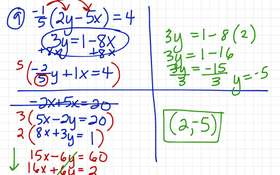 ⑨ -1/5(2y-5x)=4
3y=1-8x
+8x +8x
5(-2/5y+1x=4)
-2x+5x=20
3(5x-2y=20)
2(8x+3y=1)
15x-6y=60
16x+6y=2
3y=1-8(2)
3y=1-16
3y/3=-15/3 y=-5
(2,-5)